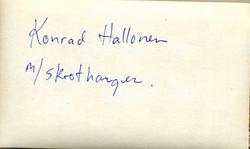 Konrad Hallonen
m/skrothanger.